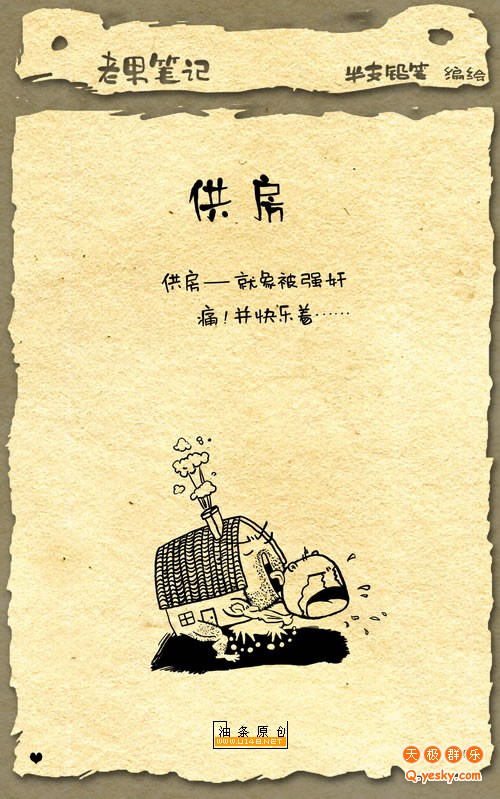 老果笔记
半支铅笔 编绘
供房
供房——就象被强奸
痛！并快乐着……
油条原创
WWW.U148.NET
天极群乐
Q.yesky.com